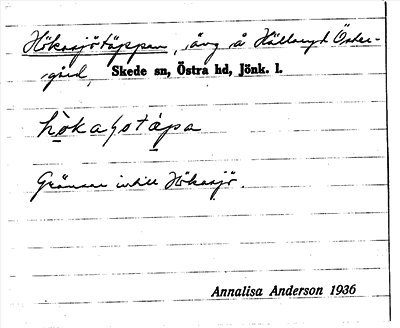 Hökasjötäppan, äng å Hällaryd Öster-
gård, Skede sn, Östra hd, Jönk. l.
hökaʃotäpa
Gränsar intill Hökasjö.
Annalisa Anderson 1936